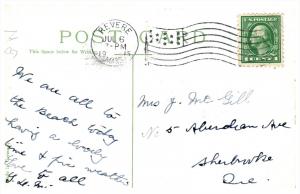 POST CARD
REVERE
JUL 6
-PM
19 15
MASS.
U.S. POSTAGE
1 CENT 1
This space below for
We are all to
the Beach today
having a lovely
time & fine weather
Love to all
Mrs J. Mc Gill
No 5 Aberdeen Ave
Sherbrooke
Que.